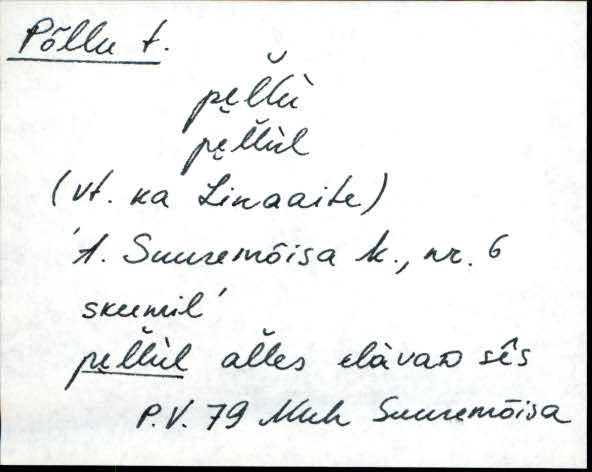 Põllu t.
pe̮l̆l̆ù
pe̮l̆l̆ùl
(vt. ka Linaaite)
't. Suuremõisa k., nr. 6
skeemil'
pe̮l̆l̆ùl al̆l̆es elàvaᴅ sê̬s
P.V. 79 Muh Suuremõisa